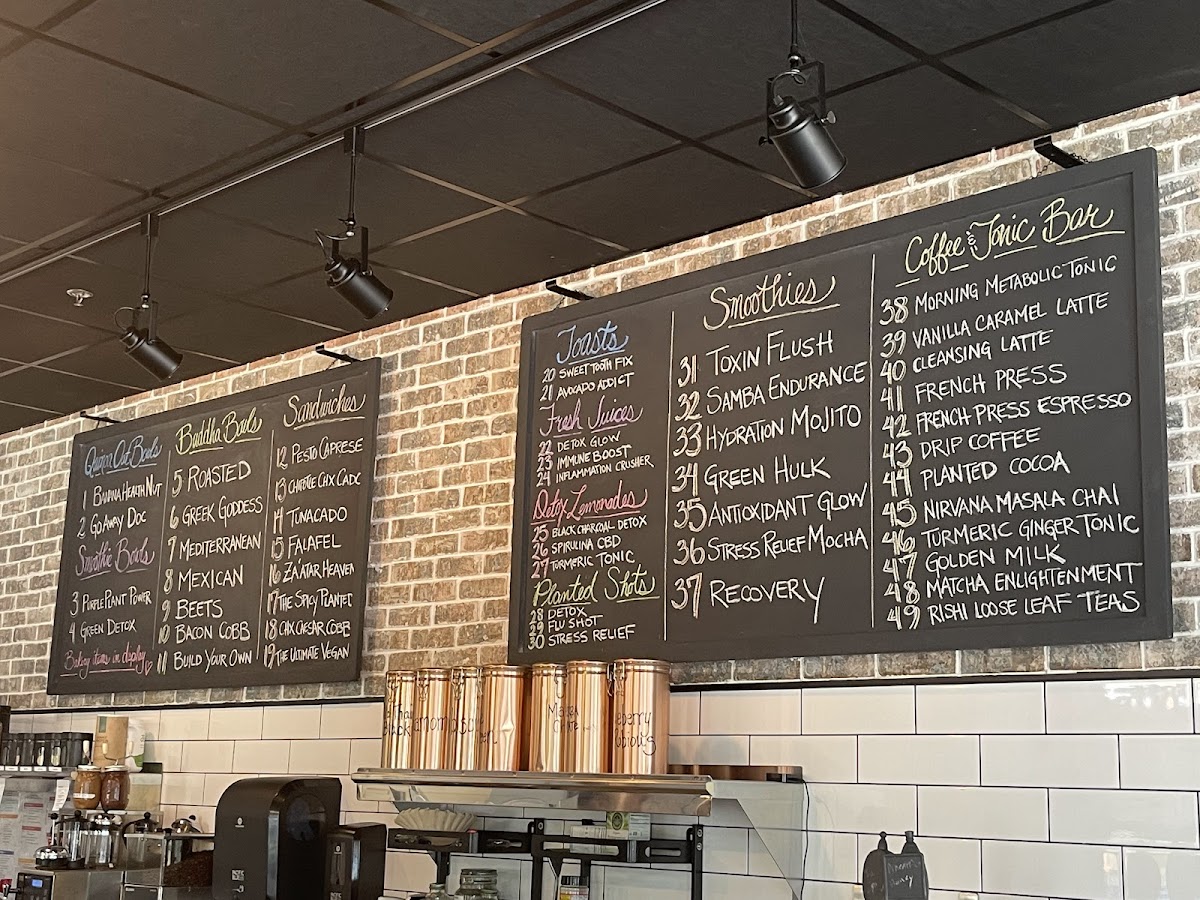 Quinoa Oat Bowls
1 Banana Health Nut
2 Go Away Doc
Smoothie Bowls
3 Purple Plant Power
4 Green Detox
Bakery items in display
Buddha Bowls
5 Roasted
6 Greek Goddess
7 Mediterranean
8 Mexican
9 Beets
10 Bacon Cobb
11 Build Your Own
Sandwiches
12 Pesto Caprese
13 Chipotle Chx Cado
14 Tunacado
15 Falafel
16 Za'atar Heaven
17 The Spicy Planted
18 Chx Caesar Cobb
19 The Ultimate Vegan
Toasts
20 Sweet Tooth Fix
21 Avocado Addict
Fresh Juices
22 Detox Glow
23 Immune Boost
24 Inflammation Crusher
Detox Lemonades
25 Black Charcoal Detox
26 Spirulina CBD
27 Turmeric Tonic
Planted Shots
28 Detox
29 Flu Shot
30 Stress Relief
Smoothies
31 Toxin Flush
32 Samba Endurance
33 Hydration Mojito
34 Green Hulk
35 Antioxidant Glow
36 Stress Relief Mocha
37 Recovery
Coffee & Tonic Bar
38 Morning Metabolic Tonic
39 Vanilla Caramel Latte
40 Cleansing Latte
41 French Press
42 French Press Espresso
43 Drip Coffee
44 Planted Cocoa
45 Nirvana Masala Chai
46 Turmeric Ginger Tonic
47 Golden Milk
48 Matcha Enlightenment
49 Rishi Loose Leaf Teas